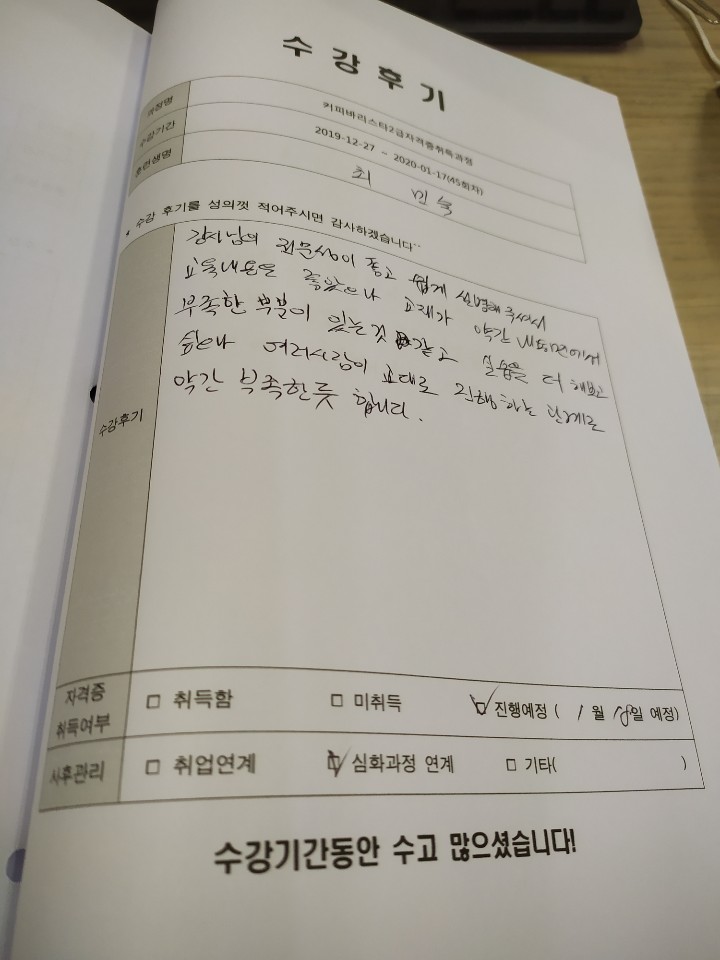 수강후기
과정명 커피바리스타2급자격증취득과정
수강기간 2019-12-27 ~ 2020-01-17(45회차)
훈련생명 최 민숙
* 수강 후기를 성의껏 적어주시면 감사하겠습니다^^
강사님의 전문성이 좋고 쉽게 설명해주셔서
교육내용은 좋았으나 교재가 약간 내용면에서
부족한 부분이 있는것 같고 실습을 더 해보고
싶으나 여러사람이 교대로 진행하는 관계로
약간 부족한듯 합니다.
수강후기
자격증 취득여부 □ 취득함 □ 미취득 ☑ 진행예정 ( 1 월 18일 예정)
사후관리 □ 취업연계 ☑ 심화과정 연계 □ 기타( )
수강기간동안 수고 많으셨습니다!